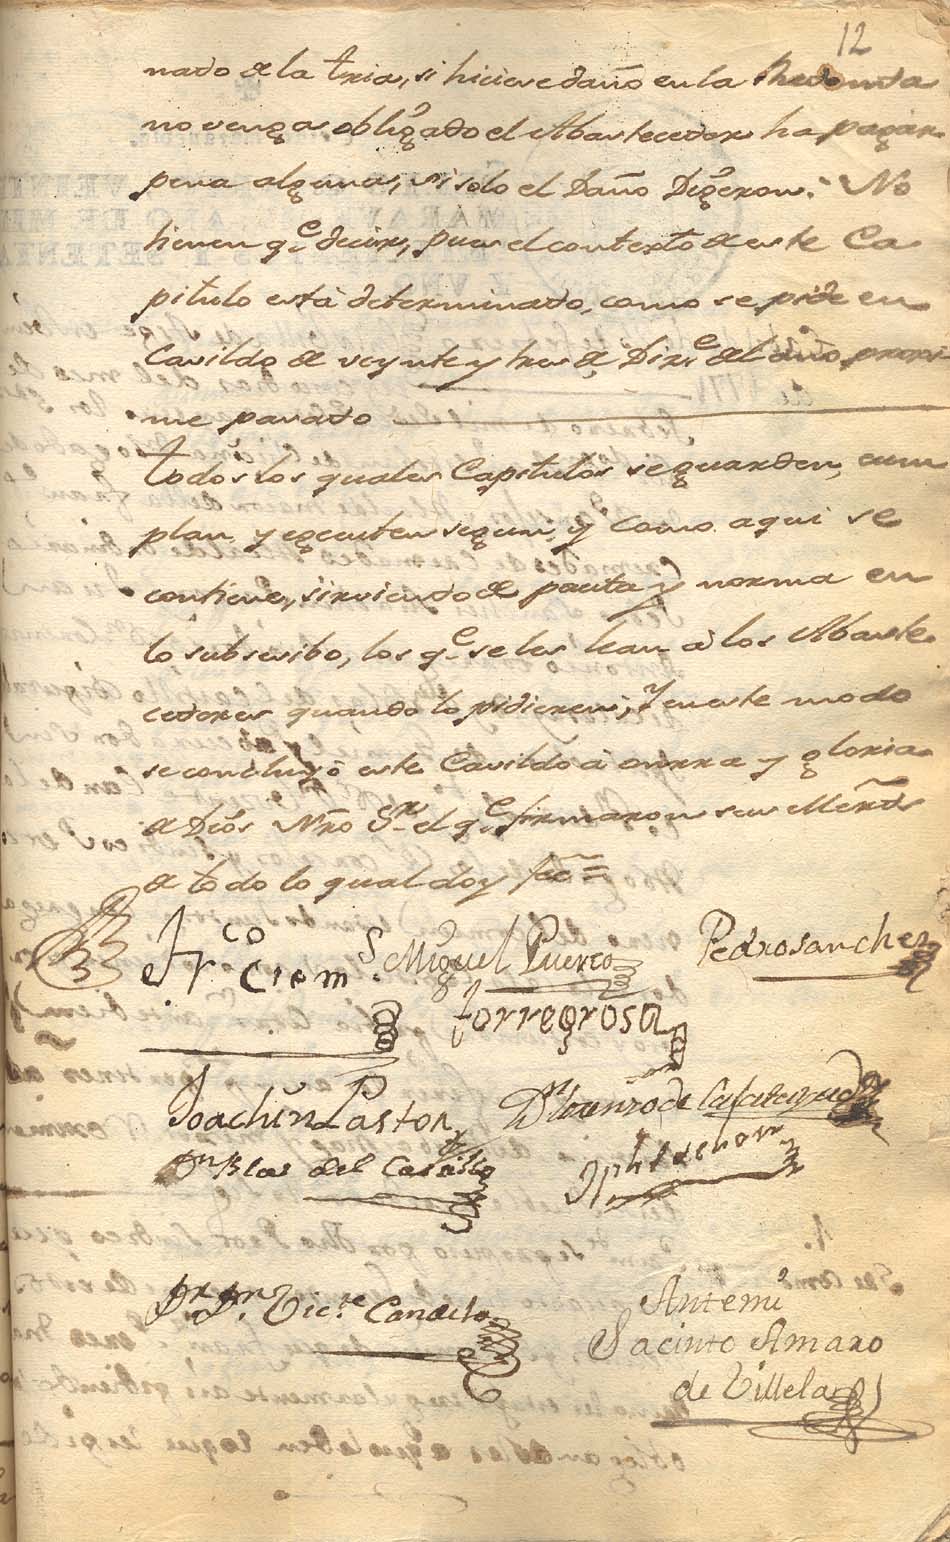 12
nado de la tria, si hiciese daño en la Redonda
no venga obligado el Abastecedor ha pagar
pena alguna, si solo el Daño Digeron: No
tienen q.e decir, pues el contexto de este Ca
pitulo está determinado, como se pide en
Cavildo de veynte y tres de Dizr.e del año proxi
me pasado
todos los quales Capitulos se guarden, cum
plan y egecuten segun, y como aqui se
contiene, sirviendo de pauta y norma en
lo subsesibo, los q.e se les lean à los Abaste
cedores quando lo pidieren; y en este modo
se concluyó este Cavildo à onrra y gloria
de Dios Nro S.r el q.e firmaron sus Merds
de todo lo qual doy fee =
Fr.co Clem.s Miguel Puerto Pedro Sanchez
torregrosa
Joachin Pastor D.n Lorenzo de
D.n Blas del Castillo
D.r D.n Vic.te Candela
Antemi
Jacinto Amaro
de Villela